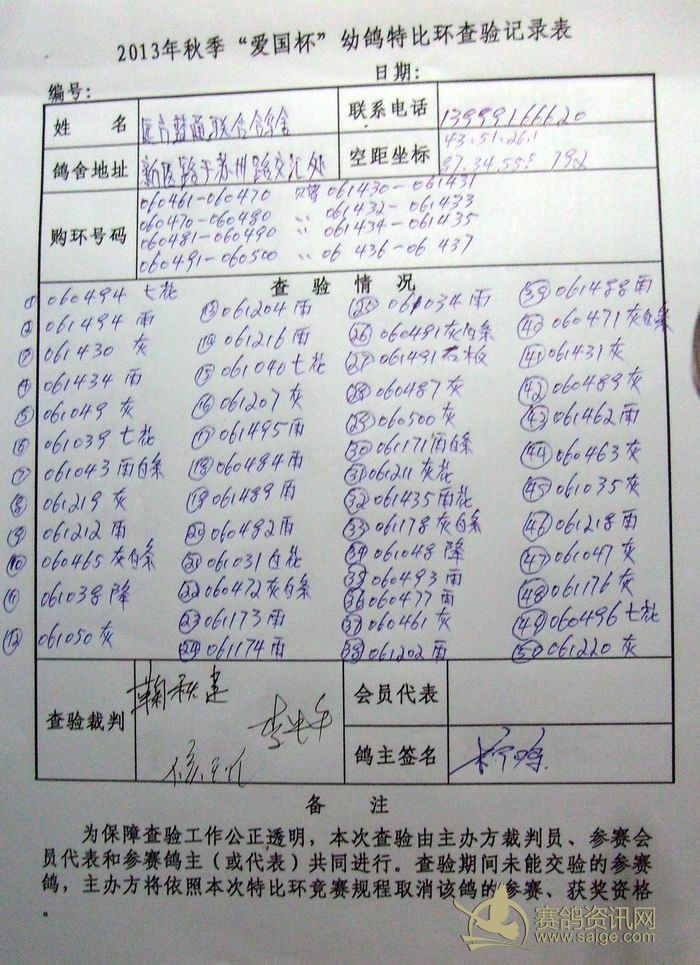 2013年秋季“爱国杯”幼鸽特比环查验记录表
编号: 日期:
姓 名 联合鸽舍 联系电话 13999166620
鸽舍地址 新医路于苏州路交汇处 空距坐标 43.51.26.1
87.34.55.5 792
购环号码 060461-060470 061430-061431
060470-060480 〃 061432-061433
060481-060490 〃 061434-061435
060491-060500 〃 06 436-06 437
查 验 情 况
① 060494 七花
② 061494 雨
③ 061430 灰
④ 061434 雨
⑤ 061049 灰
⑥ 061039 七花
⑦ 061043 雨白条
⑧ 061219 灰
⑨ 061212 雨
⑩ 060465 灰白条
⑪ 061038 降
⑫ 061050 灰
⑬ 061204 雨
⑭ 061216 雨
⑮ 061040 七花
⑯ 061207 灰
⑰ 061495 雨
⑱ 060484 雨
⑲ 061489 雨
⑳ 060482 雨
㉑ 061031 白花
㉒ 060472 灰白条
㉓ 061173 雨
㉔ 061174 雨
㉕ 061034 雨
㉖ 060481 灰白条
㉗ 061491 石板
㉘ 060487 灰
㉙ 060500 灰
㉚ 061171 雨白条
㉛ 061211 灰花
㉜ 061435 雨花
㉝ 061178 灰白条
㉞ 061048 降
㉟ 060493 雨
㊱ 060477 雨
㊲ 060461 灰
㊳ 061202 雨
㊴ 061488 雨
㊵ 060471 灰白条
㊶ 061431 灰
㊷ 060489 灰
㊸ 061462 雨
㊹ 060463 灰
㊺ 061035 灰
㊻ 061218 雨
㊼ 061047 灰
㊽ 061176 灰
㊾ 060496 七花
㊿ 061220 灰
查验裁判 鞠秋建 会员代表
鸽主签名
备 注
为保障查验工作公正透明，本次查验由主办方裁判员、参赛会
员代表和参赛鸽主（或代表）共同进行。查验期间未能交验的参赛
鸽，主办方将依照本次特比环竞赛规程取消该鸽的参赛、获奖资格
。
赛鸽资讯网
www.saige.com